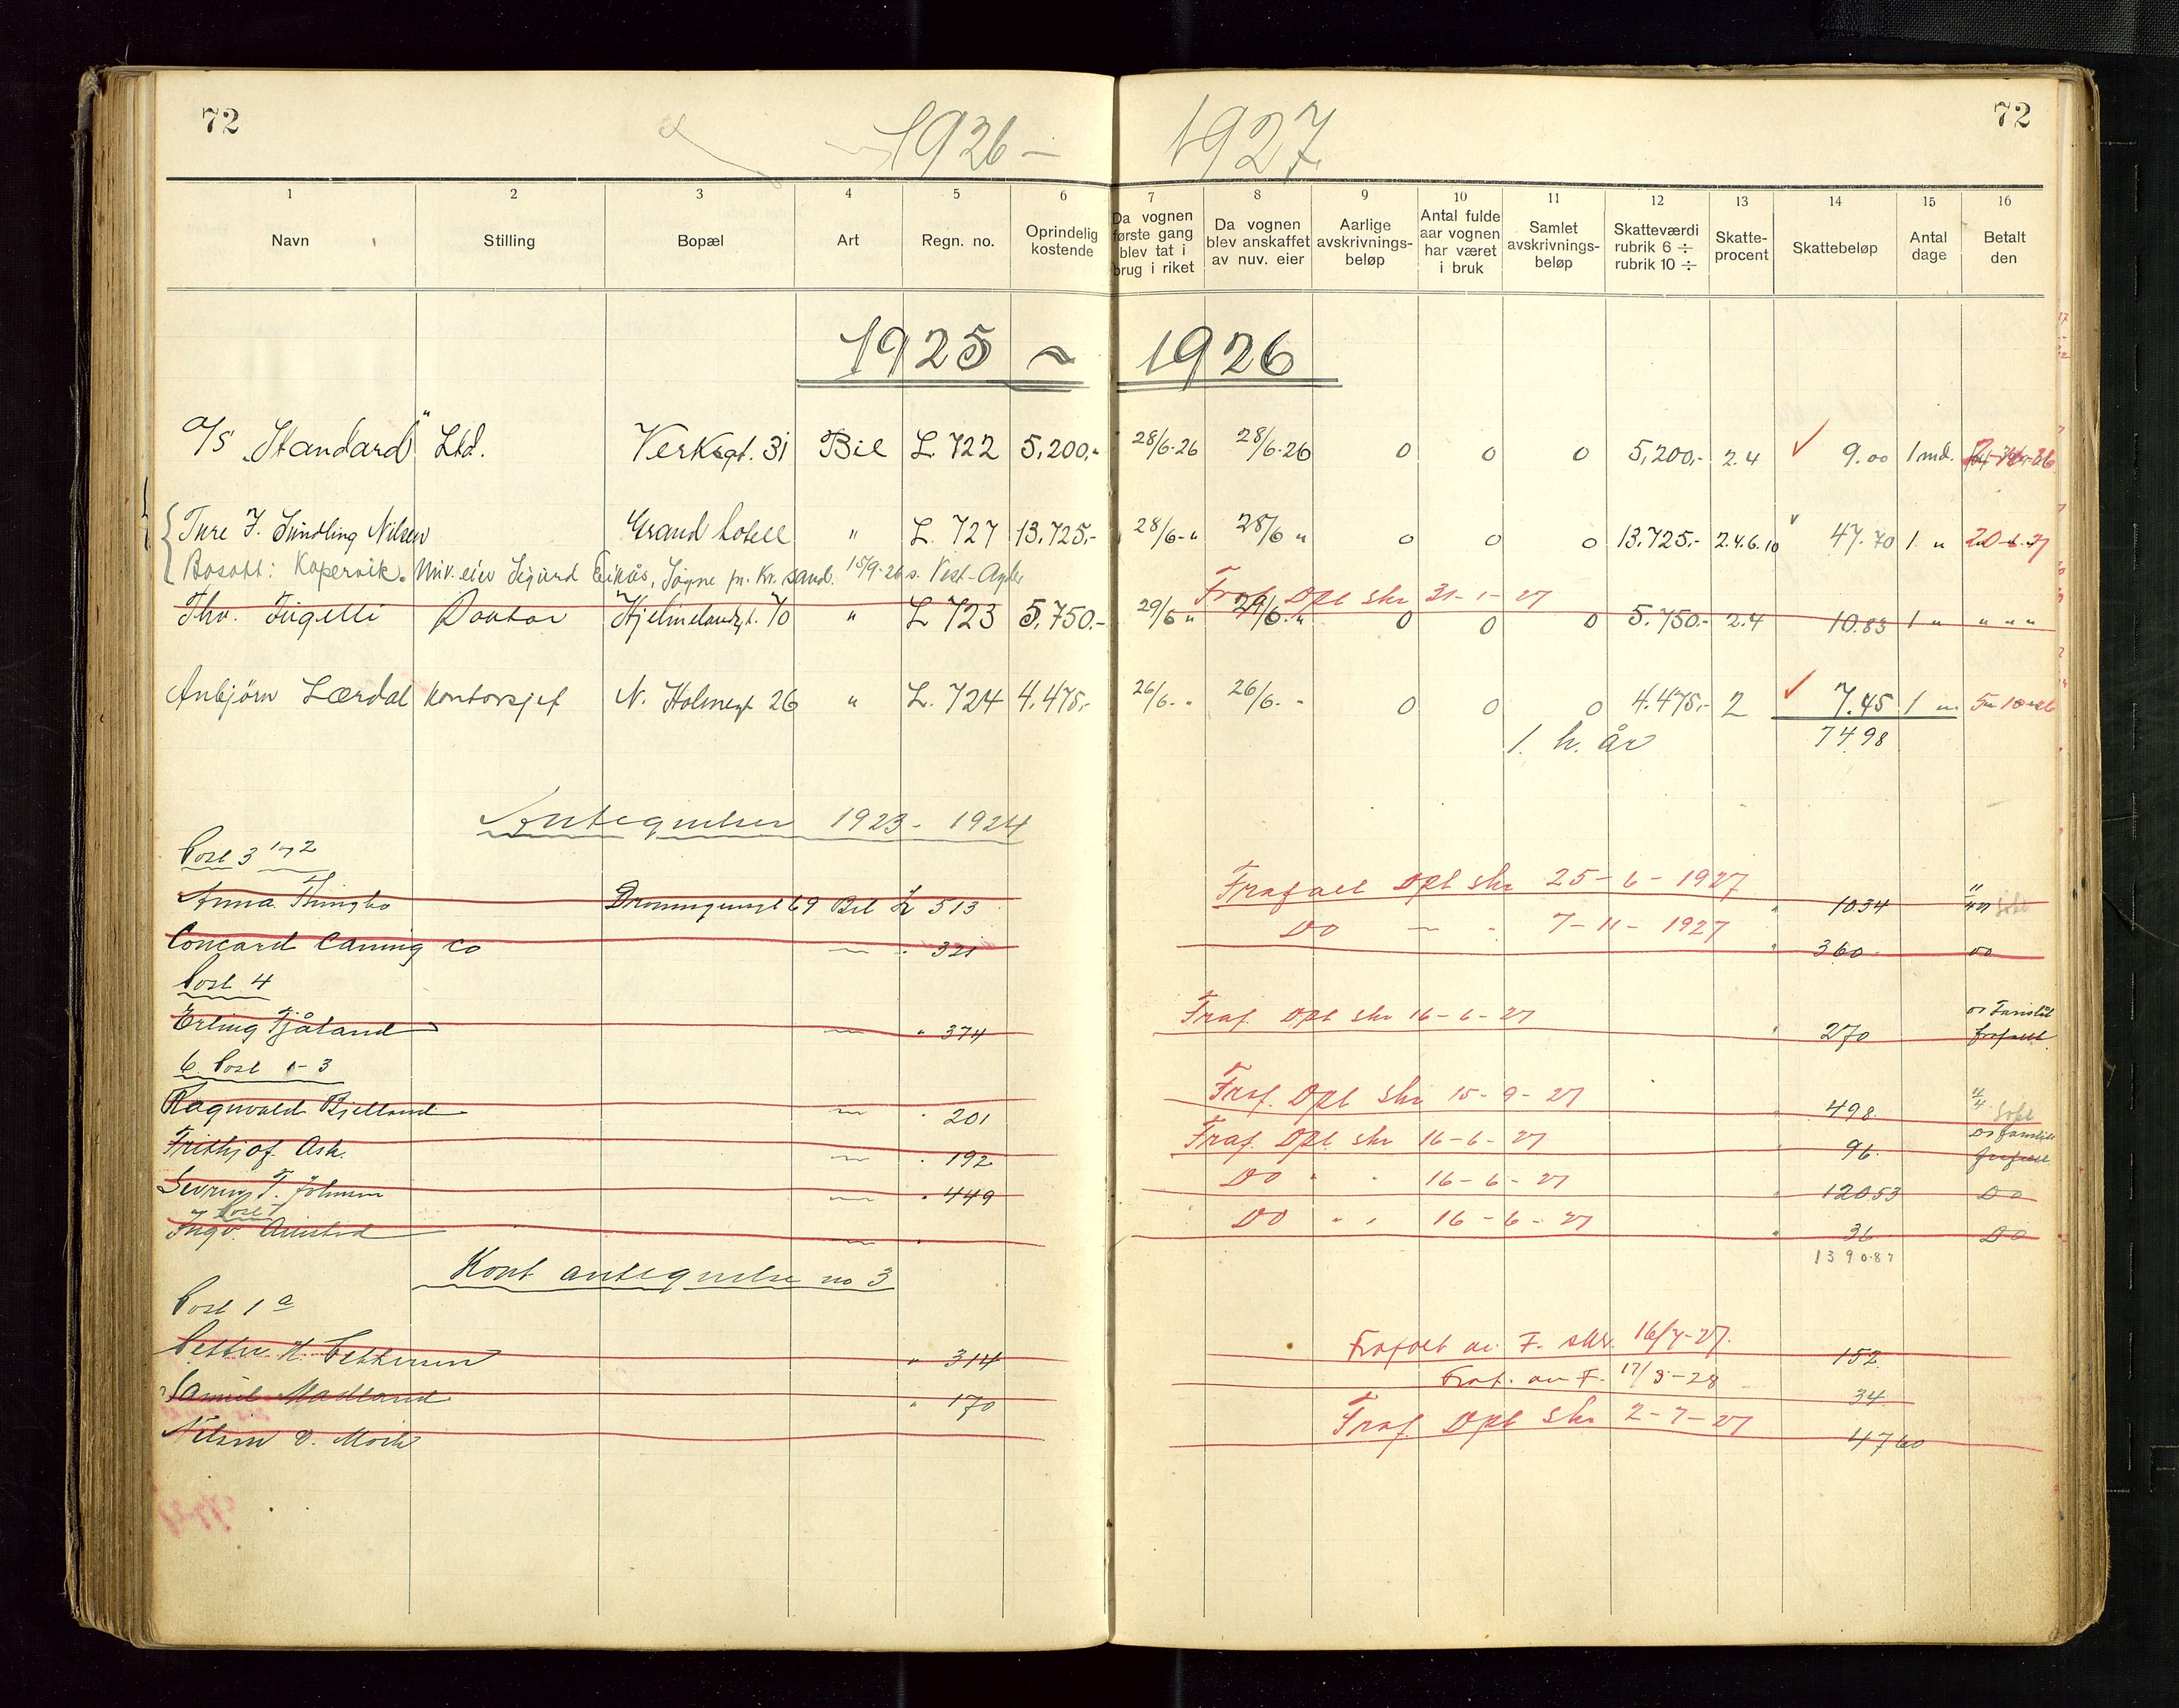 72
1926 –
1927
72
1 2 3 4 5 6 7 8 9 10 11 12 13 14 15 16
Navn
Stilling
Bopæl
Art
Regn. no.
Oprindelig
kostende
Da vognen
første gang
blev tat i
brug i riket
Da vognen
blev anskaffet
av nuv. eier
Aarlige
avskrivnings-
beløp
Antal fulde
aar vognen
har været
i bruk
Samlet
avskrivnings-
beløp
Skatteværdi
rubrik 6 ÷
rubrik 10 ÷
Skatte-
procent
Skattebeløp
Antal
dage
Betalt
den
1925 ~ 1926
A/S „Standard" Ltd. Verksgt. 31 Bil L. 722 5,200,- 28/6-26 28/6-26 0 0 0 5,200,- 2.4 9.00 1 md.
Ture F. Sundling Nilsen Grand hotell " L. 727 13,725,- 28/6-" 28/6 " 0 0 0 13,725,- 2.4.6.10 47.70 1 "
Bosatt: Kopervik. Nuv. eier Sigurd Eikås, Søgne pr. Kr.sand. 15/9-26 s. Vest-Agder
Fraf. Dpt skr 31-1-27
Thv. Fugelli Doktor Hjelmelandgt. 70 " L 723 5,750.- 29/6 " 29/6." 0 0 0 5.750.- 2.4 10.83 1 " " " "
Anbjörn Lærdal kontorsjef N. Holmegt 26 " L. 724 4,475,- 26/6. " 26/6. " 0 0 0 4.475,- 2 7.45 1 "
1. h. år 7498
Antegnelser 1923 - 1924
Post 3 1 og 2
Frafalt Dpt skr 25-6-1927
Anna Dronningensgt 69 Bil L 513 1034
Do — " 7-11-1927
Concord Caning Co — " 321 360 do
Post 4
Fraf. Dpt skr 16-6-27
Erling Tjåland — " 374 270 frafalt
6 Post 1-3
Fraf. Dpt skr 15-9-27
Ragnvald Bjelland — " 201 498
Fraf. Dpt skr 16-6-27
Frithjof Ask. — " 192 96.
Do " " 16-6-27
Severin T. Johnsen — " 449 12053 Do
Post 7
Do " " 16-6-27
Ingv. — " 36 Do
1390.87
Kont antegnelse no 3
Post 1 a
Frafalt av F. skr. 16/7-27.
Petter H. Pettersen " 314 152
Fraf. av F. 17/3-28
Samuel Madland " 170 34
Fraf. Dpt skr 2-7-27
Nilsen & Moi 4760